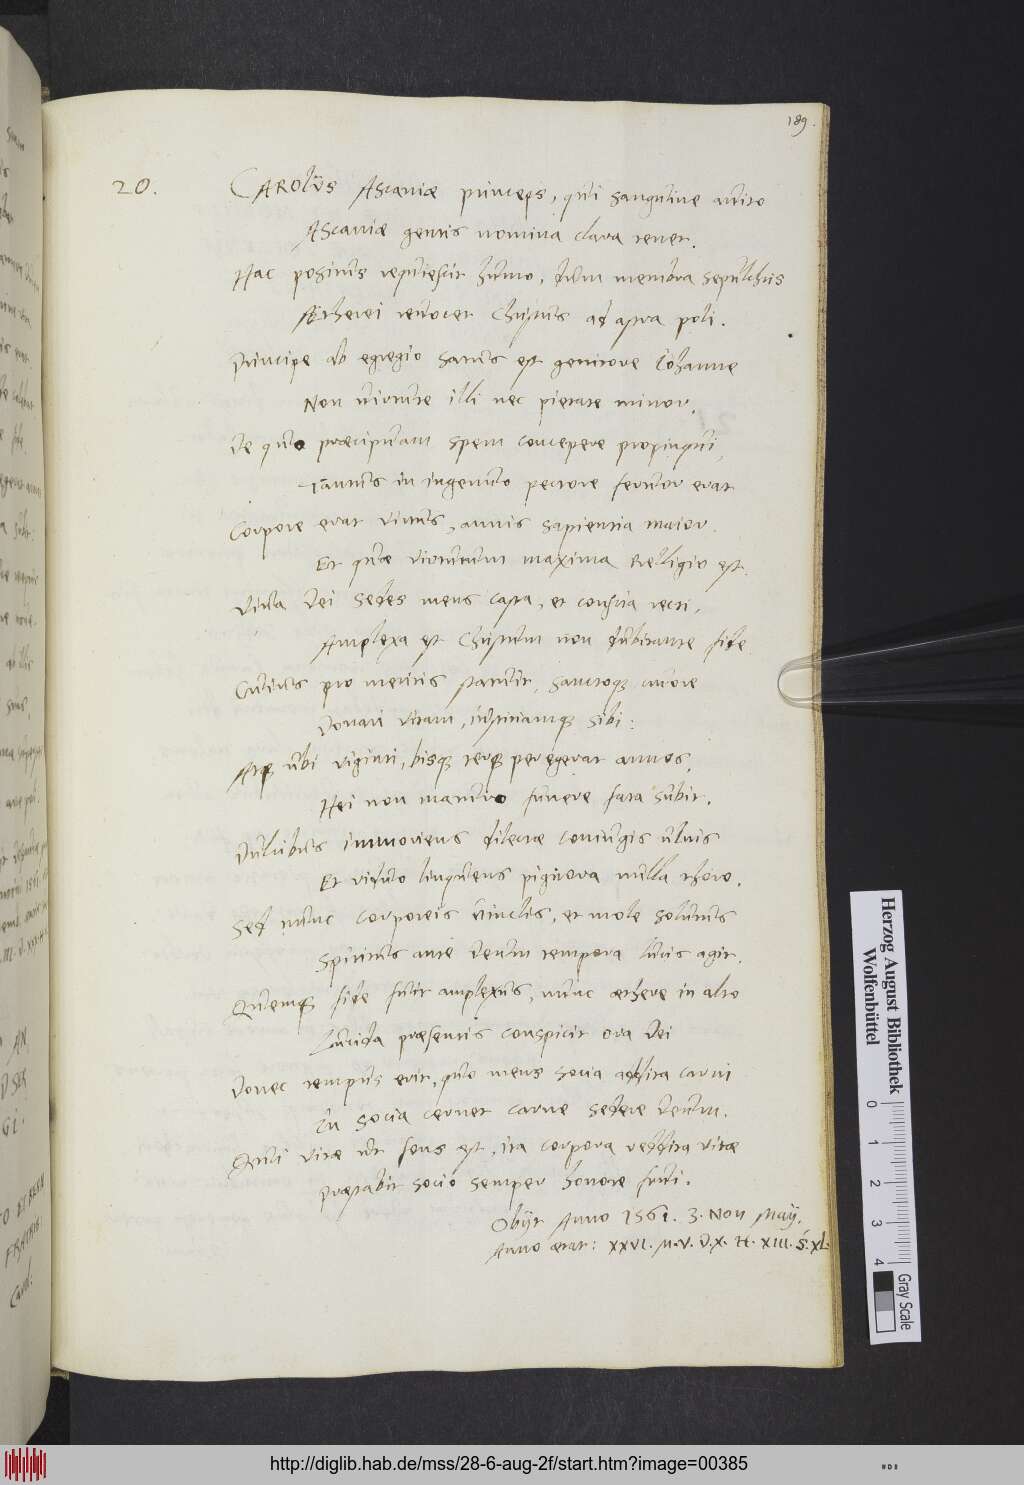 189.
20. CAROLVS Ascaniæ princeps, qui sanguine auito
Ascaniæ gentis nomina clara tenet.
Hac positus requiescit humo, dum membra sepulchris
Ætherei reuocet Christus ad astra poli.
Principe ab egregio satus est genitore Iohanne
Non uirtute illi nec pietate minor.
De quo præcipuam spem concepere propinqui,
Tantus in ingenuo pectore feruor erat
Corpore erat virtus, annis sapientia maior.
Et quæ virtutum maxima Relligio est.
Viua Dei sedes mens casta, et conscia recti,
Amplexa est Christum non dubitante fide
Cuius pro meritis statuit, sanctoq; cruore
Donari vitam, iustitiamq; sibi:
Atq; ubi viginti, bisq; terq; peregerat annos,
Hei non maturo funere fata subit.
Dulcibus immoriens dilectæ coniugis ulnis
Et viduo linquens pignora nulla thoro.
Sed nunc corporeis uinclis, et mole solutus
Spiritus ante Deum tempora lucis agit.
Quemq; fide fuit amplexus, nunc æthere in alto
Lucida præsentis conspicit ora Dei
Donec tempus erit, quo mens socia addita carni
In socia cernet carne sedere Deum.
Qui vitæ ut fons est, ita corpora reddita vitæ
Præstabit socio semper honore frui.
Obijt Anno 1561. 3. Non May.
Anno ætat: XXVI. M. V. D. X. H. XIII. S. XL.
Herzog August Bibliothek
Wolfenbüttel
0 1 2 3 4
Gray Scale
http://diglib.hab.de/mss/28-6-aug-2f/start.htm?image=00385